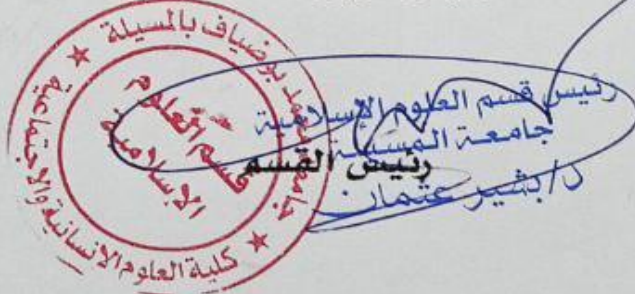 جامعة محمد بوضياف بالمسيلة
كلية العلوم الانسانية والاجتماعية
قسم العلوم
الاسلامية
رئيس قسم العلوم الإسلامية
جامعة المسيلة
رئيس القسم
د/بشير عثمان